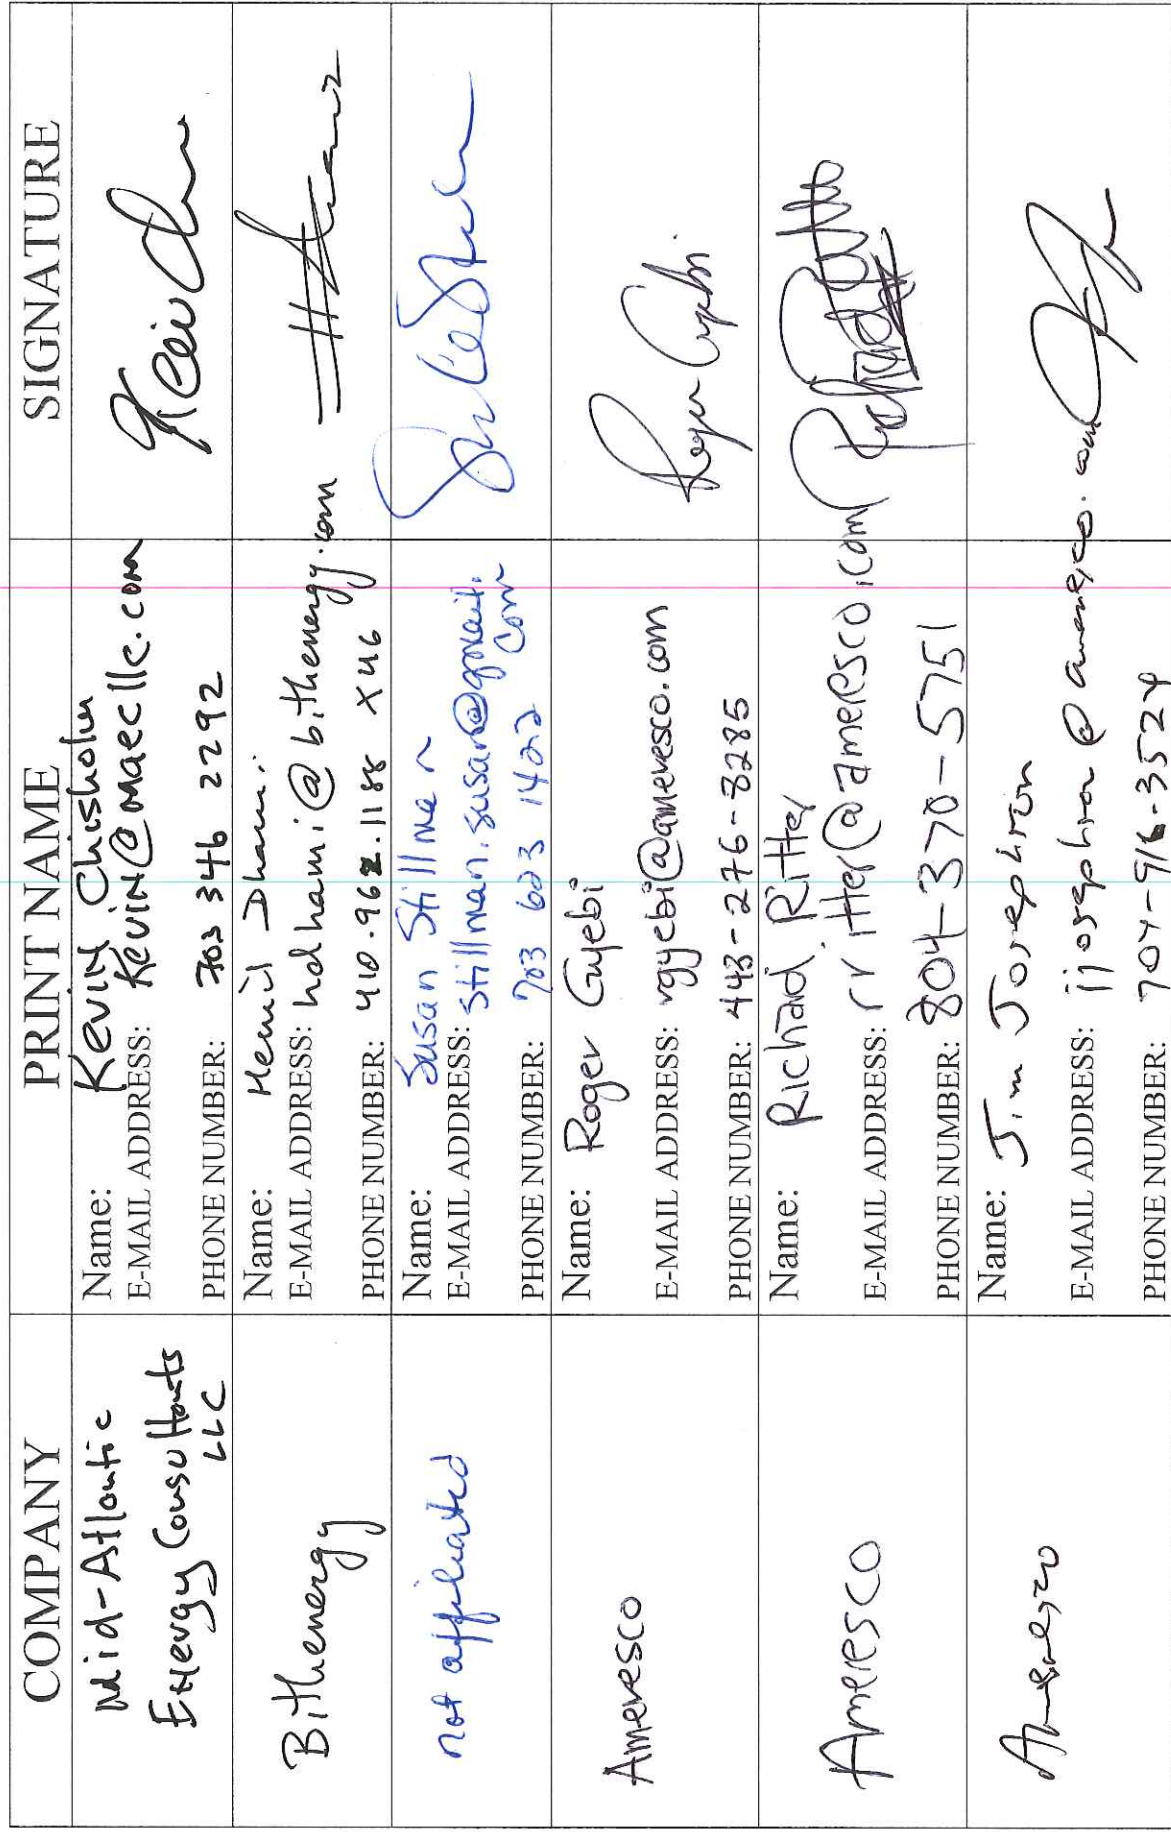 COMPANY PRINT NAME SIGNATURE
Mid-Atlantic
Energy Consultants
LLC
Name: Kevin Chisholm
E-MAIL ADDRESS: Kevin@maecllc.com
PHONE NUMBER: 703 346 2292
Bithenergy
Name: Hemil Dhami
E-MAIL ADDRESS: hdhami@bithenergy.com
PHONE NUMBER: 410.962.1188 X46
not affiliated
Name: Susan Stillman
E-MAIL ADDRESS: stillman.susan@gmail.
com
PHONE NUMBER: 703 603 1422
Ameresco
Name: Roger Gyebi
E-MAIL ADDRESS: rgyebi@ameresco.com
PHONE NUMBER: 443-276-8285
Ameresco
Name: Richard Ritter
E-MAIL ADDRESS: rritter@ameresco.com
PHONE NUMBER: 804-370-5751
Ameresco
Name: Jim Josephson
E-MAIL ADDRESS: @ameresco.com
PHONE NUMBER: 704-916-3524